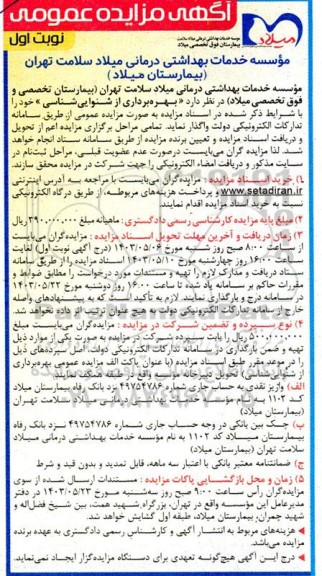 آگهی مزایده عمومی
نوبت اول
میلاد
مؤسسه خدمات بهداشتی درمانی میلاد سلامت تهران
بیمارستان فوق تخصصی میلاد
مؤسسه خدمات بهداشتی درمانی میلاد سلامت تهران
(بیمارستان میلاد)
مؤسسه خدمات بهداشتی درمانی میلاد سلامت تهران (بیمارستان تخصصی و
فوق تخصصی میلاد) در نظر دارد «بهره‌برداری از شنوایی‌شناسی» خود را
با شرایط ذکر شده در اسناد مزایده به صورت مزایده عمومی از طریق سامانه
تدارکات الکترونیکی دولت واگذار نماید. تمامی مراحل برگزاری مزایده اعم از تحویل
و دریافت اسناد مزایده و تعیین برنده مزایده از طریق سامانه ستاد انجام خواهد
شد. لذا مزایده گران می‌بایست در صورت عدم عضویت قبلی، مراحل ثبت‌نام در
سایت مذکور و دریافت امضاء الکترونیکی را جهت شرکت در مزایده محقق سازند.
۱) خرید اسناد مزایده: مزایده گران می‌بایست با مراجعه به آدرس اینترنتی
www.setadiran.ir و پرداخت هزینه‌های مربوطه، از طریق درگاه الکترونیکی
نسبت به خرید اسناد مزایده اقدام نمایند.
۲) مبلغ پایه مزایده کارشناسی رسمی دادگستری: ماهیانه مبلغ ۳۹۰.۰۰۰.۰۰۰ ریال
۳) زمان دریافت و آخرین مهلت تحویل اسناد مزایده: مزایده گران می‌بایست
از ساعت ۸:۰۰ صبح روز شنبه مورخ ۱۴۰۳/۰۵/۰۶ (درج آگهی نوبت اول) لغایت
ساعت ۱۶:۰۰ روز چهارشنبه مورخ ۱۴۰۳/۰۵/۱۰ اسناد مزایده را از طریق سامانه
ستاد دریافت و مدارک لازم را تهیه و مستندات مورد درخواست را مطابق ضوابط و
مقررات حاکم بر سامانه یاد شده تا ساعت ۱۶:۰۰ روز دوشنبه مورخ ۱۴۰۳/۰۵/۲۲
در سامانه درج و بارگذاری نمایند. لازم به تأکید است که به پیشنهادهای واصله
خارج از سامانه تدارکات الکترونیکی دولت، هیچ عنوان ترتیب اثر داده نخواهد شد.
۴) نوع سپرده و تضمین شرکت در مزایده: مزایده گران می‌بایست مبلغ
۵۰۰.۰۰۰.۰۰۰ ریال را بابت سپرده شرکت در مزایده به صورت یکی از موارد ذیل
تهیه و ضمن بارگذاری در سامانه تدارکات الکترونیکی دولت، اصل سپرده‌های ذیل
را در موعد مقرر طبق اسناد مزایده (با عنوان پاکت الف مزایده عمومی بهره‌برداری
از شنوایی‌شناسی) تحویل دبیرخانه مؤسسه واقع در طبقه همکف نمایند.
الف) واریز نقدی به حساب جاری شماره ۴۹۷۵۴۷۸۶ نزد بانک رفاه بیمارستان میلاد
کد ۱۱۰۲ به نام مؤسسه خدمات بهداشتی درمانی میلاد سلامت تهران
(بیمارستان میلاد)
ب) چک بین بانکی در وجه حساب جاری شماره ۴۹۷۵۴۷۸۶ نزد بانک رفاه
بیمارستان میلاد کد ۱۱۰۲ به نام مؤسسه خدمات بهداشتی درمانی میلاد
سلامت تهران (بیمارستان میلاد)
ج) ضمانتنامه معتبر بانکی با اعتبار سه ماهه، قابل تمدید و بدون قید و شرط
۵) زمان و محل بازگشایی پاکات مزایده: مستندات ارسال شده از سوی
مزایده‌گران رأس ساعت ۹:۰۰ صبح روز سه‌شنبه مورخ ۱۴۰۳/۰۵/۲۳ در دفتر
مدیرعامل این مؤسسه واقع در تهران، بزرگراه شهید همت، بین شیخ فضل‌اله و
شهید چمران، بیمارستان میلاد، طبقه اول گشایش خواهد شد.
هزینه‌های مربوط به انتشار آگهی و کارشناس رسمی دادگستری به عهده برنده
مزایده می‌باشد.
درج این آگهی هیچ‌گونه تعهدی برای دستگاه مزایده‌گزار ایجاد نمی‌نماید.